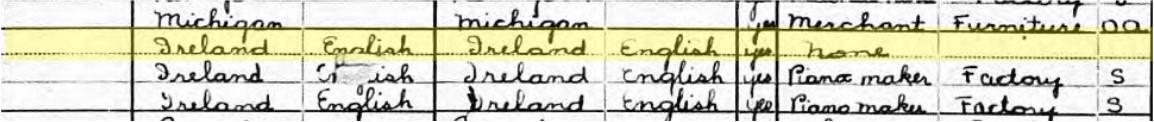 Michigan Michigan yes Merchant Furniture OA
Ireland English Ireland English yes None
Ireland ish Ireland English yes Piano maker Factory S
Ireland English Ireland English yes Piano maker Factory S